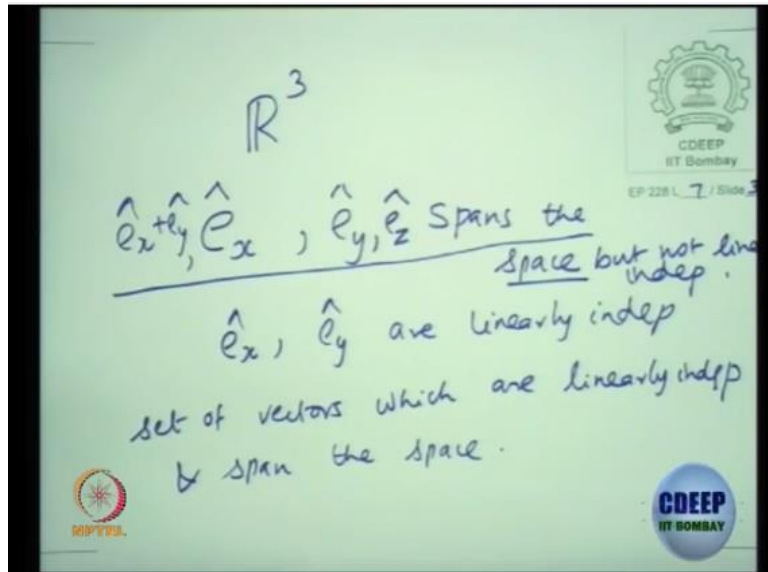 ℝ³
CDEEP
IIT Bombay
EP 228 L 7 / Slide 3
ê_x+ê_y, ê_x , ê_y, ê_z Spans the
space but not line
indep.
ê_x, ê_y are linearly indep
set of vectors which are linearly indep
& span the space.
NPTEL
CDEEP
IIT BOMBAY